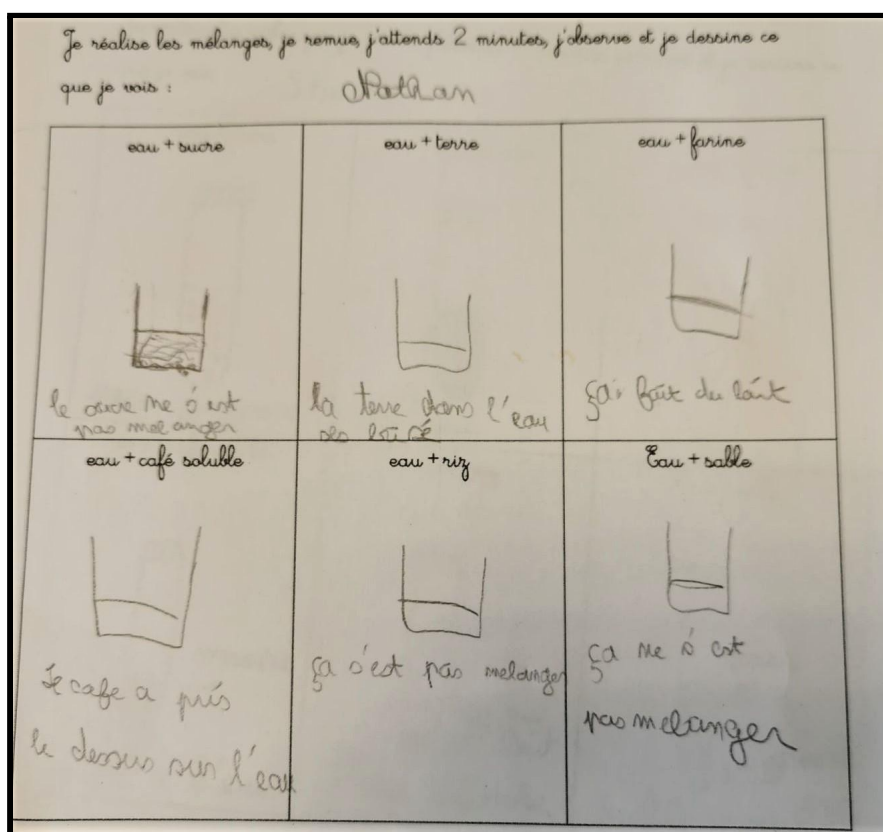 Je réalise les mélanges, je remue, j'attends 2 minutes, j'observe et je dessine ce
que je vois :
Nathan
eau + sucre
eau + terre
eau + farine
le sucre ne s'est
pas melanger
la terre dans l'eau
ça fait du lait
eau + café soluble
eau + riz
Eau + sable
le cafe a pris
le dessus sur l'eau
ça s'est pas melanger
ça ne s'est
pas melanger